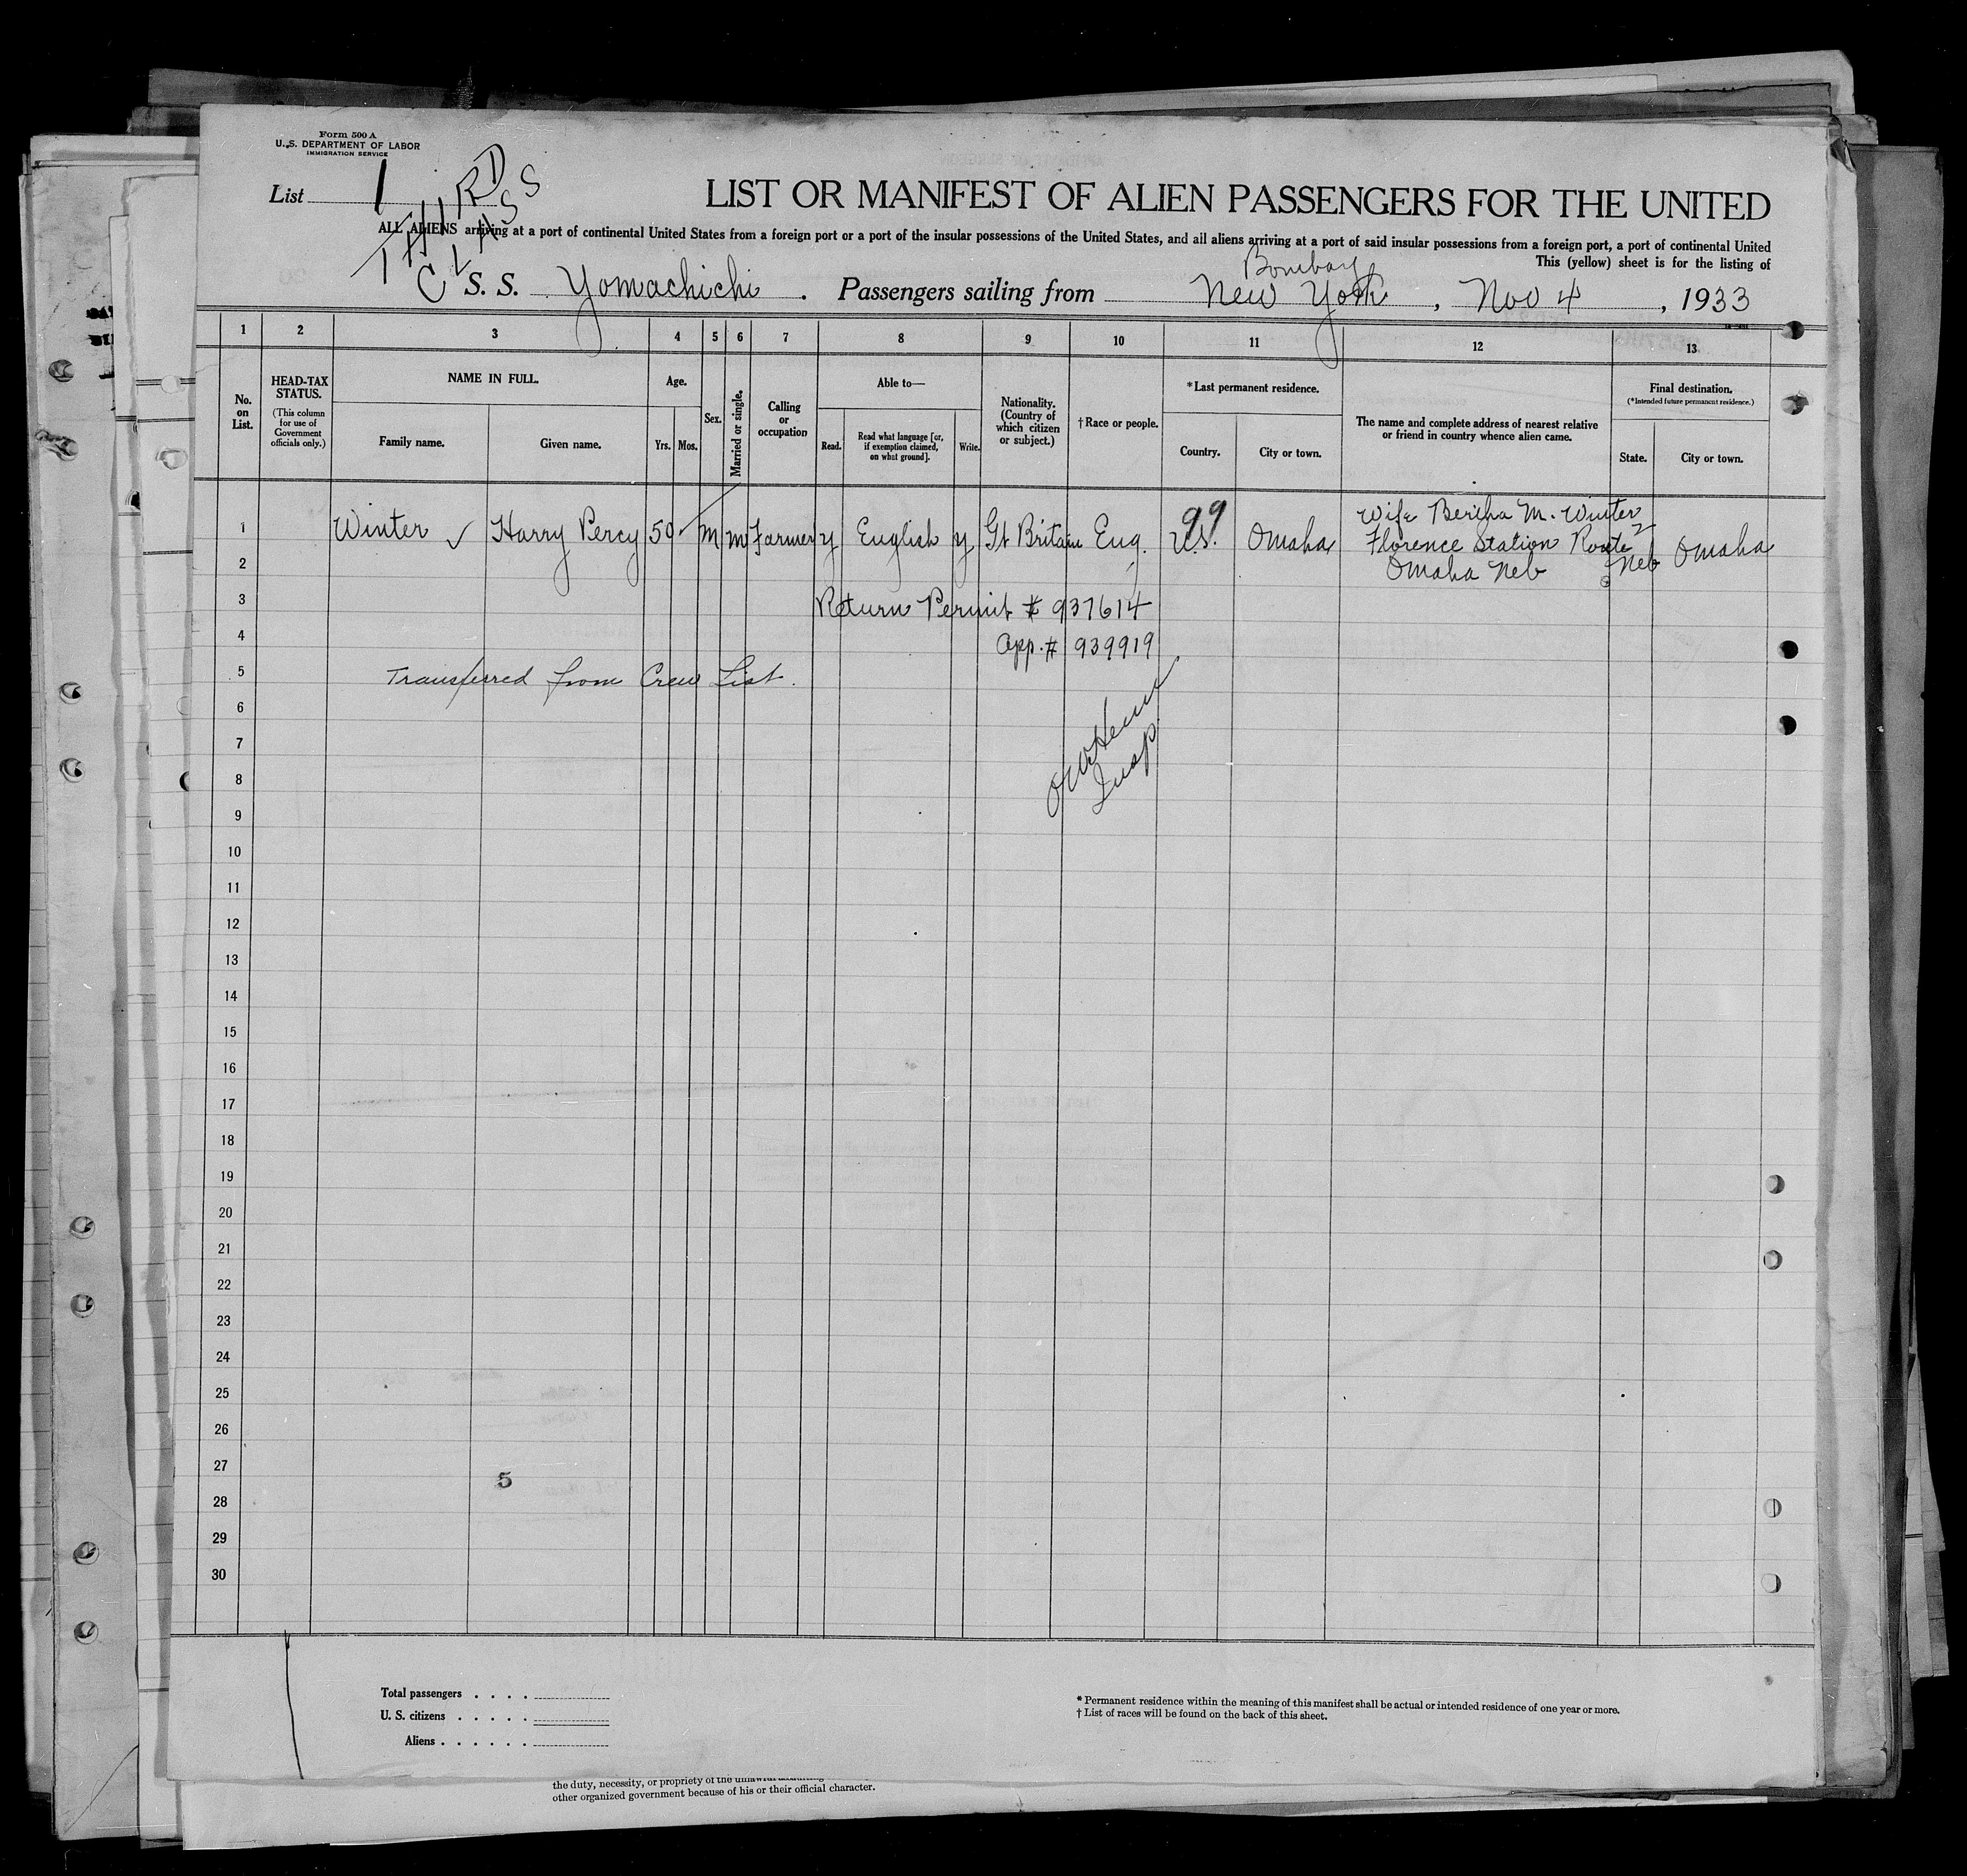 Form 500 A
U. S. DEPARTMENT OF LABOR
IMMIGRATION SERVICE
List 1
THIRD CLASS
LIST OR MANIFEST OF ALIEN PASSENGERS FOR THE UNITED
ALL ALIENS arriving at a port of continental United States from a foreign port or a port of the insular possessions of the United States, and all aliens arriving at a port of said insular possessions from a foreign port, a port of continental United
This (yellow) sheet is for the listing of
Bombay
S. S. Yomachichi . Passengers sailing from New York , Nov 4 , 1933
1 2 3 4 5 6 7 8 9 10 11 12 13
No. on List.
HEAD-TAX STATUS.
(This column for use of Government officials only.)
NAME IN FULL.
Family name.
Given name.
Age.
Yrs.
Mos.
Sex.
Married or single.
Calling or occupation
Able to—
Read.
Read what language [or, if exemption claimed, on what ground].
Write.
Nationality. (Country of which citizen or subject.)
† Race or people.
*Last permanent residence.
Country.
City or town.
The name and complete address of nearest relative or friend in country whence alien came.
Final destination.
(*Intended future permanent residence.)
State.
City or town.
99
1 Winter ✓ Harry Percy 50 M m Farmer y English y Gt Britain Eng. U.S. Omaha Wife Bertha M. Winter
Florence Station Route 2
Omaha Neb Neb Omaha
2
3 Return Permit # 937614
4 App. # 939919
5 Transferred from Crew List.
6
7
8 Insp
9
10
11
12
13
14
15
16
17
18
19
20
21
22
23
24
25
26
27
5
28
29
30
Total passengers . . . .
U. S. citizens . . . . .
Aliens . . . . . .
* Permanent residence within the meaning of this manifest shall be actual or intended residence of one year or more.
† List of races will be found on the back of this sheet.
the duty, necessity, or propriety of the
other organized government because of his or their official character.